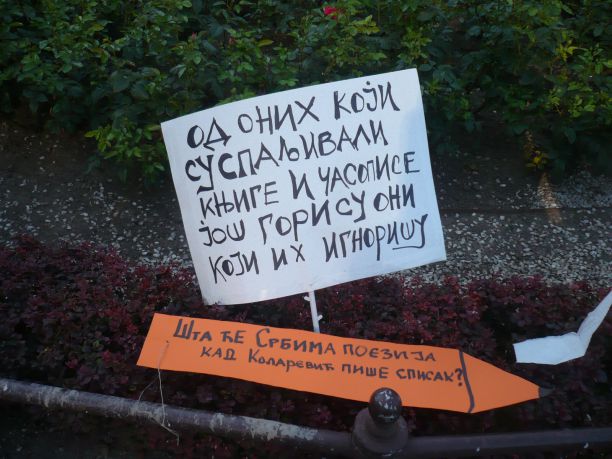 ОД ОНИХ КОЈИ
СУ СПАЉИВАЛИ
КЊИГЕ И ЧАСОПИСЕ
ЈОШ ГОРИ СУ ОНИ
КОЈИ ИХ ИГНОРИШУ
ШТА ЋЕ СРБИМА ПОЕЗИЈА
КАД КОЛАРЕВИЋ ПИШЕ СПИСАК?